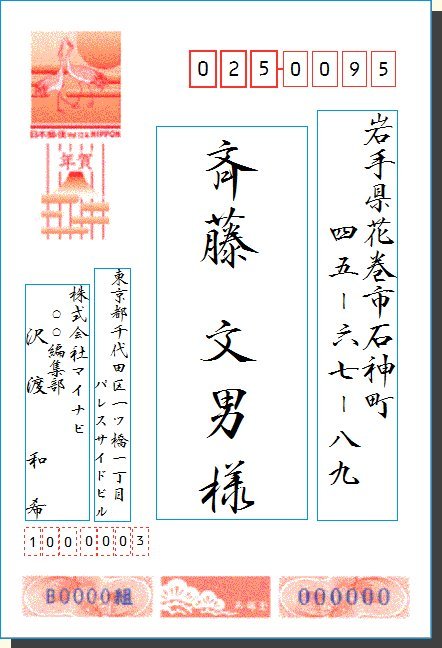 025-0095
岩手県花巻市石神町
四五ー六七ー八九
斉藤 文男様
日本郵便 NIPPON
年賀
東京都千代田区一ツ橋一丁目
パレスサイドビル
株式会社マイナビ
○○編集部
沢渡 和希
1000003
B0000組
000000